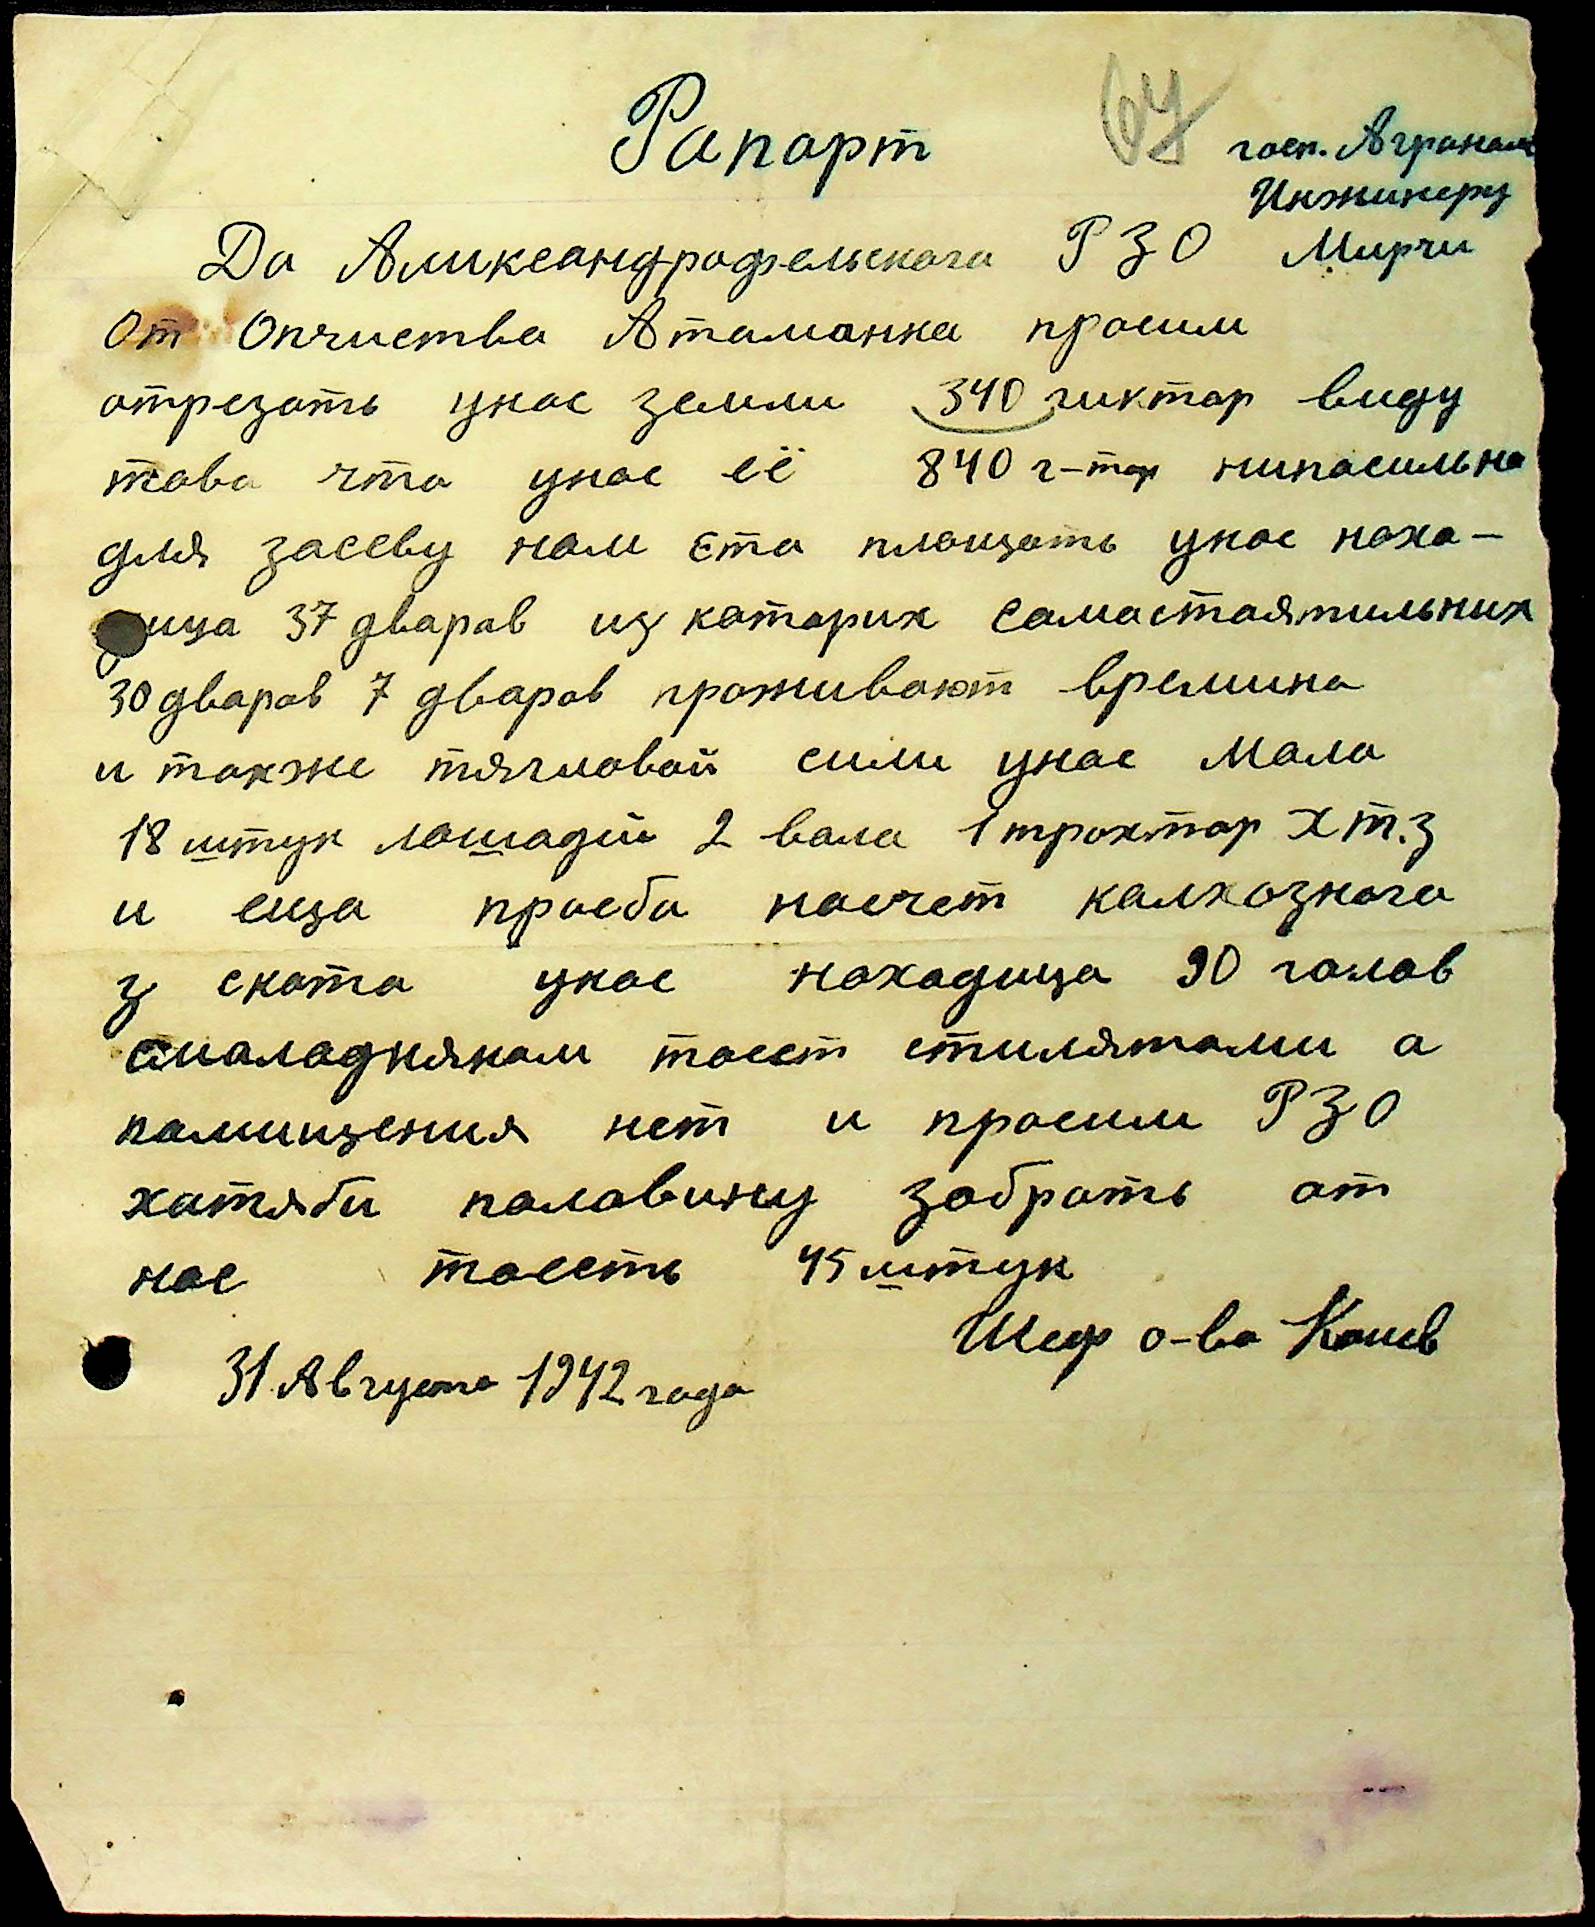 Рапорт
64
госп. Аграному
Инжинеру
Да Аликсандрофельскога РЗО Мирчи
От Опчиства Атаманка просим
отрезать унас земли 340 гиктар виду
тово что унас её 840 г-тар нипасильно
для засеву нам Ета площать унас нахо-
дица 37 дваров из каторих самастаятильних
30 дваров 7 дваров проживают времино
и также тягловой сили унас Мало
18 штук лошадий 2 вала 1 трактор Х Т.З
и еща прозба насчет калхознога
з скота унас находица 90 голов
смаладняком тоест стилятами а
памищения нет и просим РЗО
хатяби половину забрать от
нас тоесть 45 штук
Шеф о-ва Канев
31 Августа 1942 года